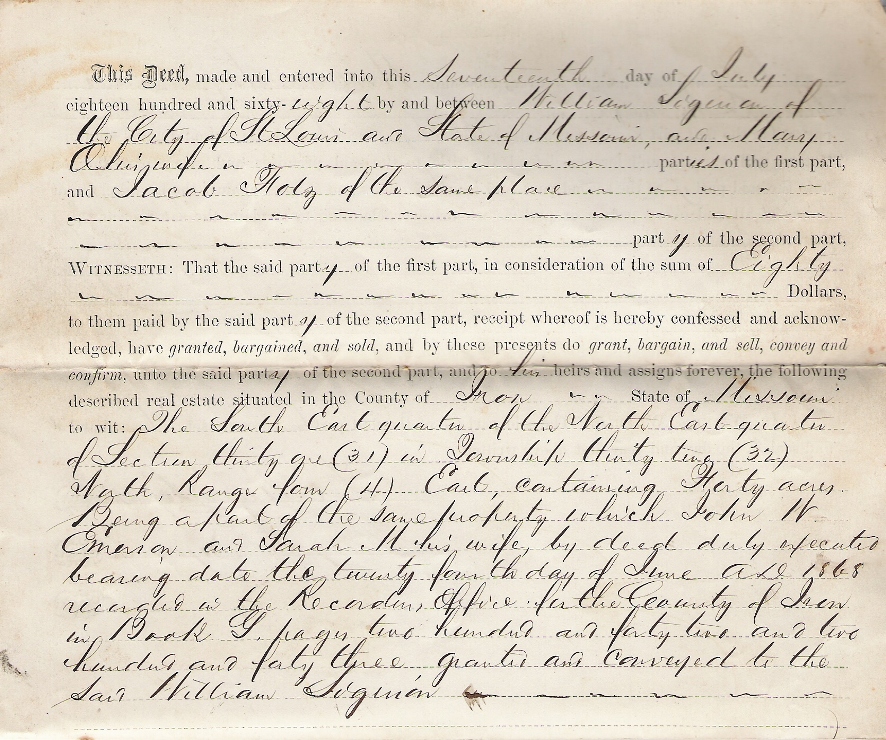 This Deed, made and entered into this Seventeenth day of July
eighteen hundred and sixty-eight by and between William Sigerson of
the City of St Louis and State of Missouri, and Mary
parties of the first part,
and Jacob Folz of the same place
party of the second part,
WITNESSETH: That the said party of the first part, in consideration of the sum of Eighty
Dollars,
to them paid by the said party of the second part, receipt whereof is hereby confessed and acknow-
ledged, have granted, bargained, and sold, and by these presents do grant, bargain, and sell, convey and
confirm, unto the said party of the second part, and to his heirs and assigns forever, the following
described real estate situated in the County of Iron State of Missouri
to wit: The South East quarter of the North East quarter
of Section thirty one (31) in Township thirty two (32)
North, Range four (4) East, containing Forty acres.
Being a part of the same property which John W
Emerson and Sarah M his wife, by deed duly executed
bearing date the twenty fourth day of June A.D 1868
recorded in the Recorders Office for the County of Iron
in Book G. pages two hundred and forty two and two
hundred and forty three granted and conveyed to the
said William Sigerson